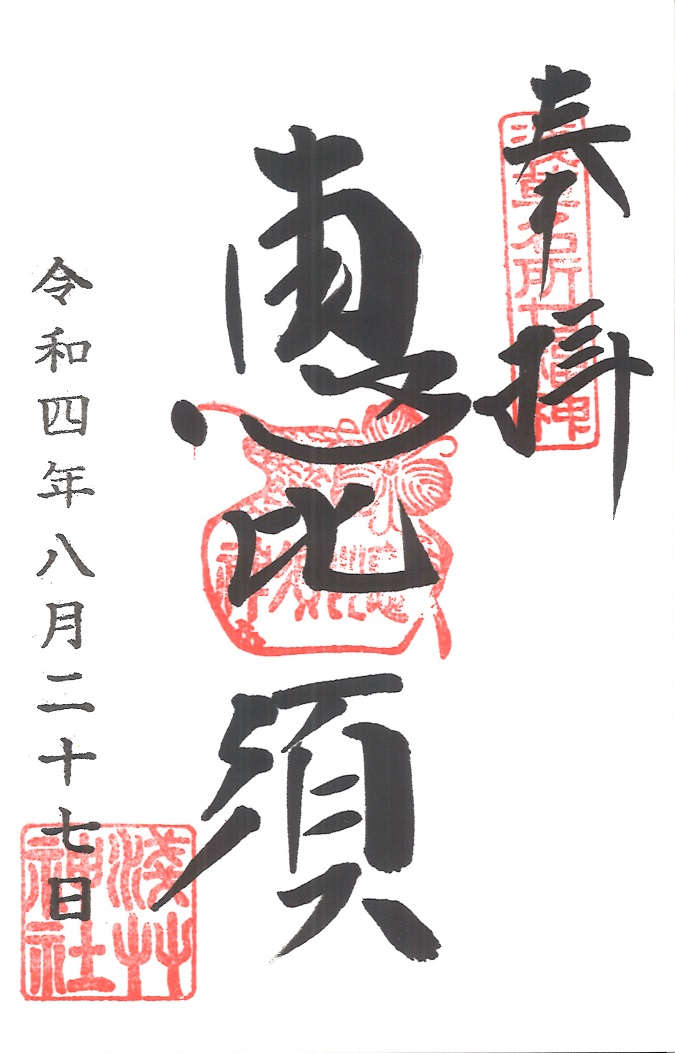 奉拝
浅草名所七福神
恵比須
恵比須神
令和四年八月二十七日
浅草神社